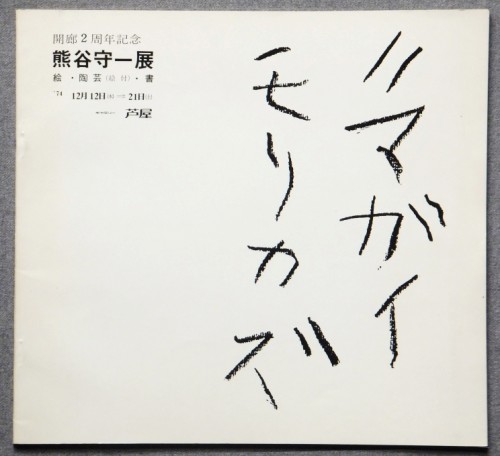 開廊2周年記念
熊谷守一展
絵・陶芸(絵付)・書
'74 12月12日(木)〜21日(土)
芦屋
クマガイ
モリカズ